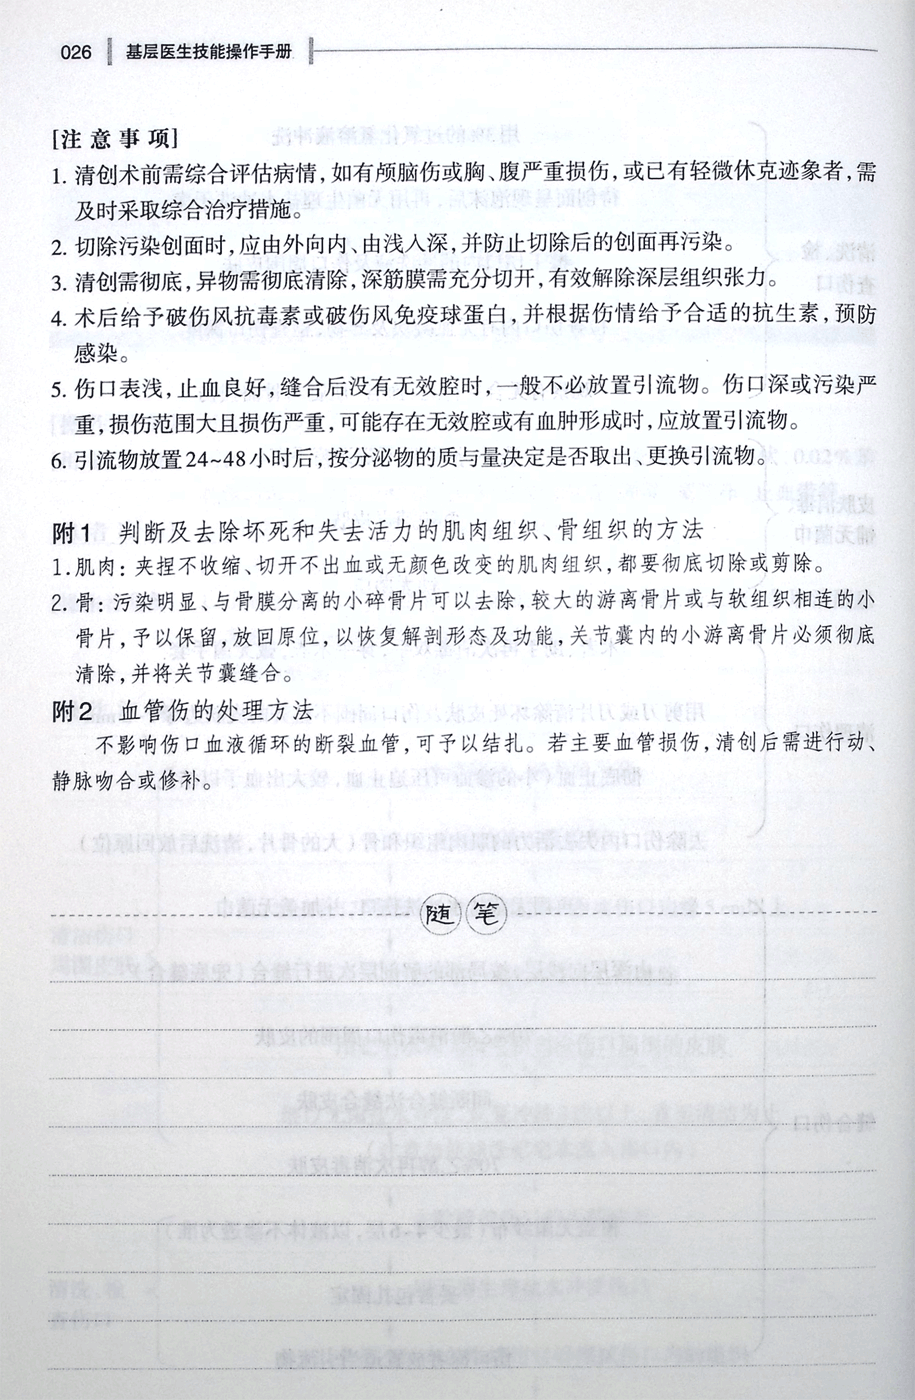 026 基层医生技能操作手册
[注意事项]
1. 清创术前需综合评估病情,如有颅脑伤或胸、腹严重损伤,或已有轻微休克迹象者,需
及时采取综合治疗措施。
2. 切除污染创面时,应由外向内、由浅入深,并防止切除后的创面再污染。
3. 清创需彻底,异物需彻底清除,深筋膜需充分切开,有效解除深层组织张力。
4. 术后给予破伤风抗毒素或破伤风免疫球蛋白,并根据伤情给予合适的抗生素,预防
感染。
5. 伤口表浅,止血良好,缝合后没有无效腔时,一般不必放置引流物。伤口深或污染严
重,损伤范围大且损伤严重,可能存在无效腔或有血肿形成时,应放置引流物。
6. 引流物放置24~48小时后,按分泌物的质与量决定是否取出、更换引流物。
附1 判断及去除坏死和失去活力的肌肉组织、骨组织的方法
1. 肌肉:夹捏不收缩、切开不出血或无颜色改变的肌肉组织,都要彻底切除或剪除。
2. 骨:污染明显、与骨膜分离的小碎骨片可以去除,较大的游离骨片或与软组织相连的小
骨片,予以保留,放回原位,以恢复解剖形态及功能,关节囊内的小游离骨片必须彻底
清除,并将关节囊缝合。
附2 血管伤的处理方法
不影响伤口血液循环的断裂血管,可予以结扎。若主要血管损伤,清创后需进行动、
静脉吻合或修补。
随笔